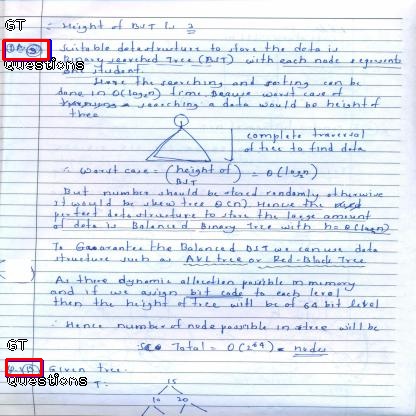 ∴ Height of BST is 3
GT
Questions
Suitable datastructure to store the data is
binary searched Tree (BST) with each node represents
one student.
Here the searching and getting can be
done in O(log₂n) time. Because worst case of
searching a data would be height of
tree
complete traversal
of tree to find data
∴ Worst case = (height of BST) = O(log₂n)
But number should be stored randomly otherwise
it would be skew tree O(n) Hence the
perfect datastructure to store the large amount
of data is Balanced Binary Tree with h=O(log n)
To Gaurantee the Balanced BST we can use data
structure such as AVL tree or Red-Black Tree
As there dynamic allocation possible in memory
and if we assign bit code to each level
then the height of tree will be of 64 bit level
∴ Hence number of node possible in tree will be
Total = O(2⁶⁴) nodes
GT
Questions
Given tree.
T:
15
10 20